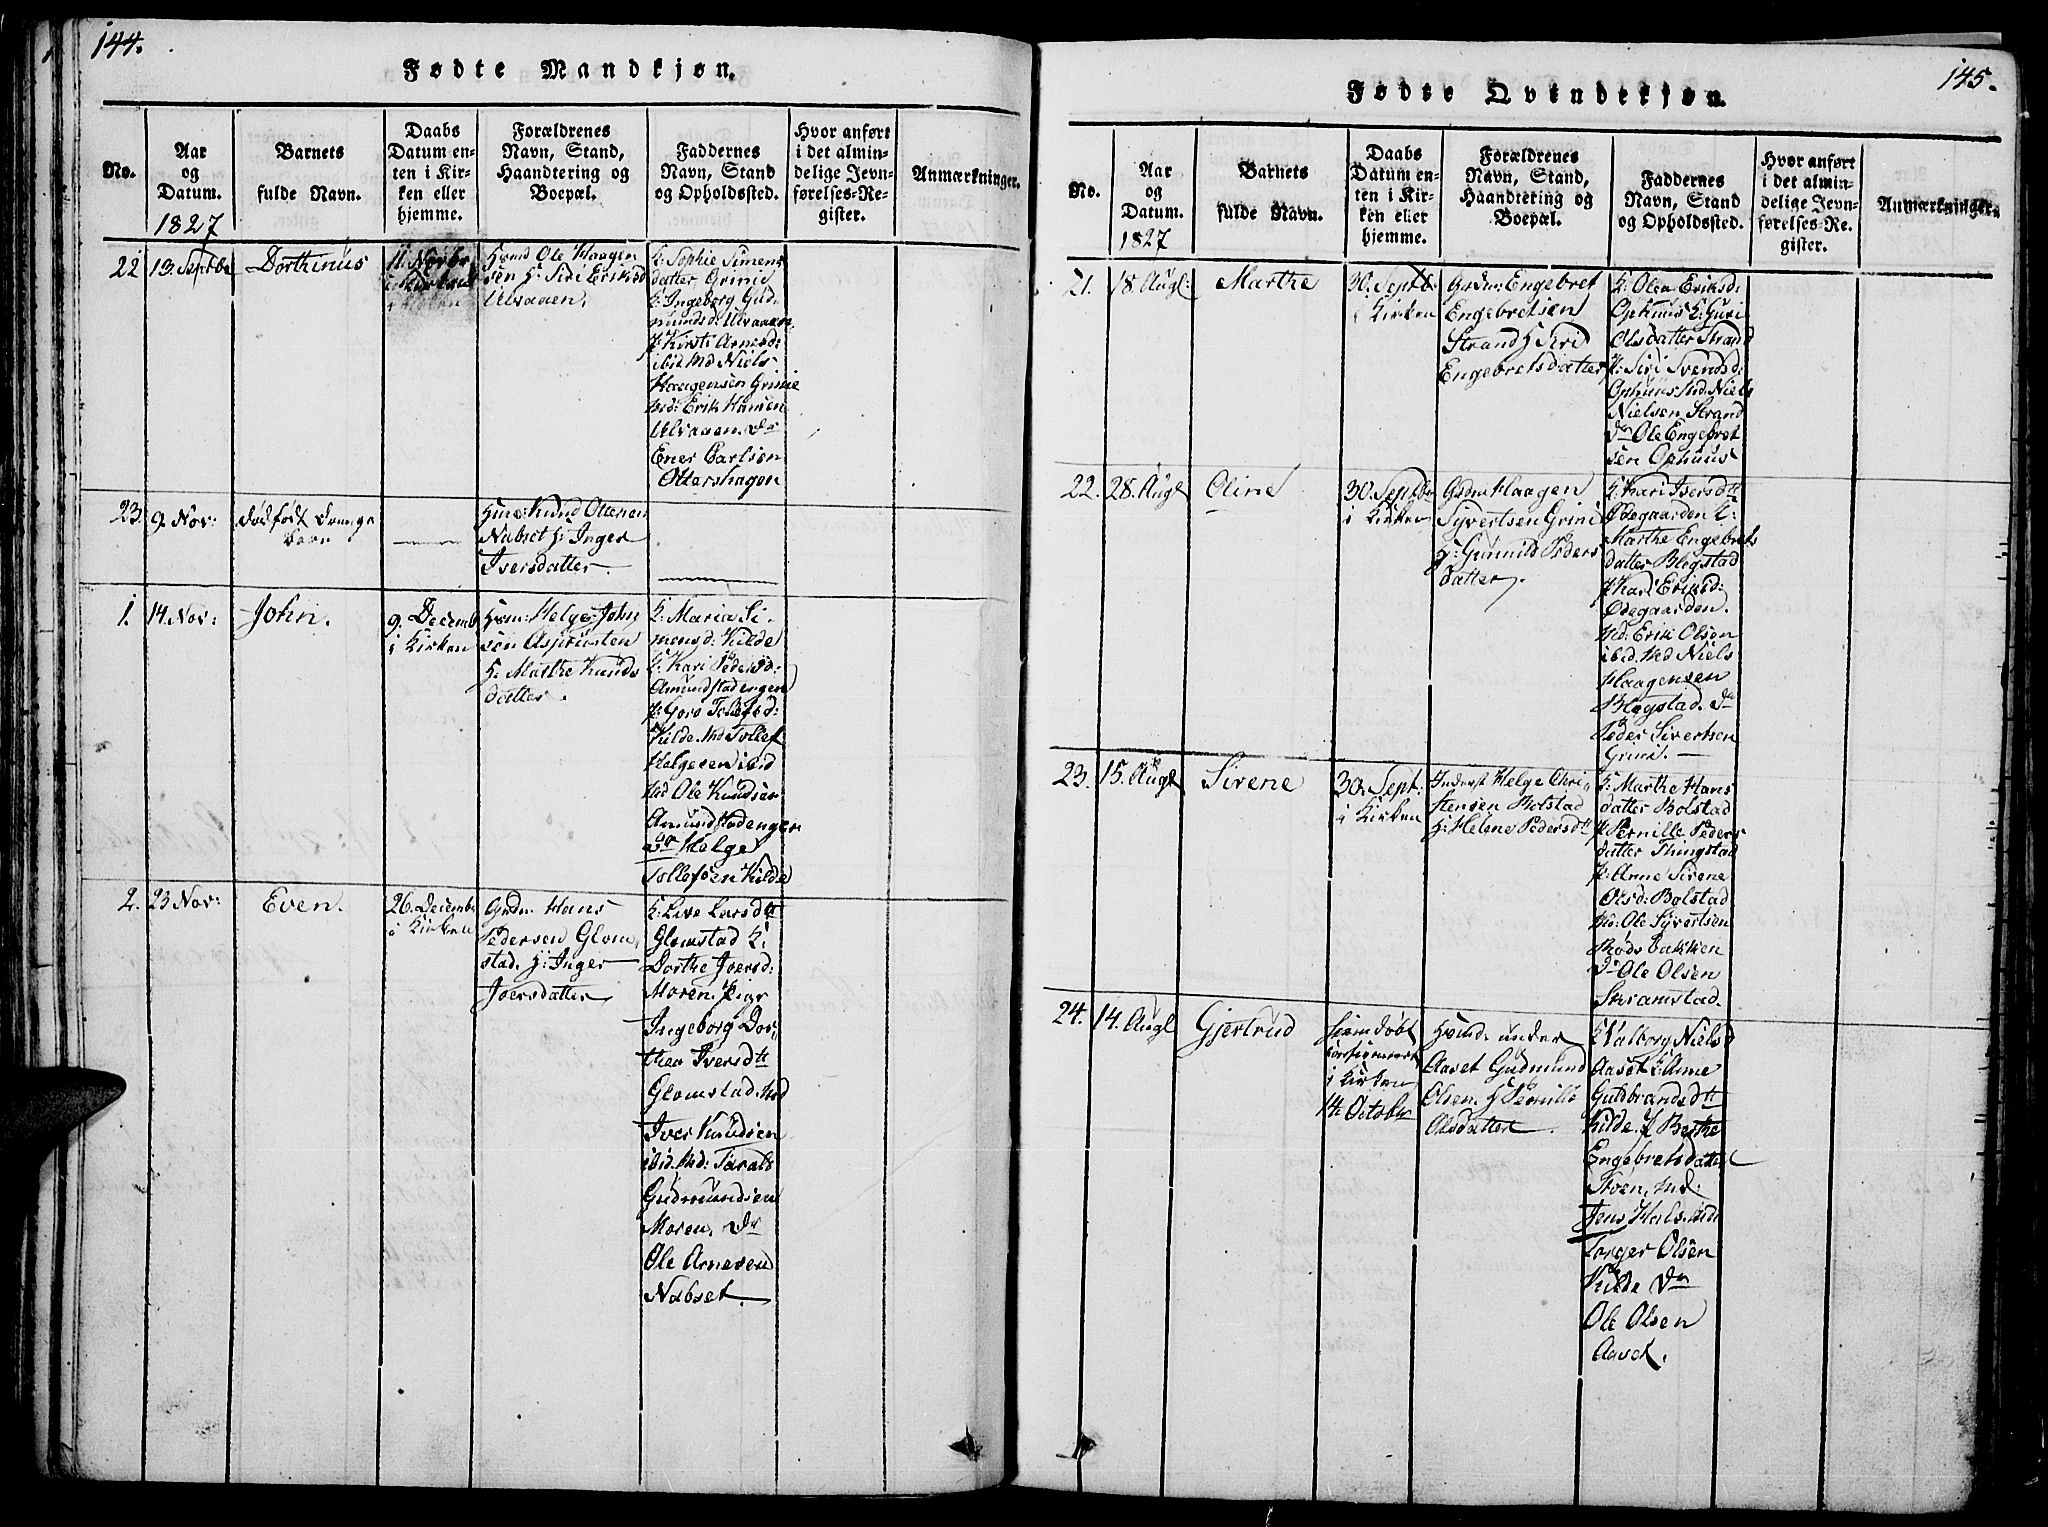 144.
Fødte Mandkjøn.
No.
Aar
og
Datum.
1827
Barnets
fulde Navn.
Daabs
Datum en-
ten i Kir-
ken eller
hjemme.
Forældrenes
Navn, Stand,
Haandtering og
Boepæl.
Faddernes
Navn, Stand
og Opholdssted.
Hvor anført
i det almin-
delige Jevn-
førelses-Re-
gister.
Anmærkninger.
22
13. Septbr
Dorthinus
11. Novbr
i Kirken
Ole Haagen
sen H: Siri Eriksd
Ulvaaen.
K: Sophie Simens
datter Grinie
K: Ingeborg Gud-
mundsd: Ulvaaen
P: Kirsti Arnesd:
ibid Md Niels
Haagensen Grinie
Md: Erik Hansen
Ulvaaen. Dr
Ener Carlsen
Ottershagen
23.
9. Nov:
dødfødt Drenge
Barn
Knud Ottersen
Nabset H: Inger
Iversdatter.
1.
14. Nov:
John.
9. Decemb
i Kirken
Helge John
sen
H. Marthe Knuds
datter.
K: Maria Si-
mensd: Kilde
K: Kari Pedersd:
Amundstadengen
P: Goro Tollefsd:
Kilde. Md Tollef
Helgesen ibid
Md Ole Knudsen
Amundstadengen
Dr Helge
Tollefsen Kilde
2.
23 Nov:
Even.
26. Decemb
i Kirken
Grdm. Hans
Pedersen Glom-
stad. H: Inger
Iversdatter
K: Live Larsdtr
Glomstad K:
Dorthe Iversd:
Moren. Pige
Ingeborg Dor-
thea Iversdtr
Glomstad. Md
Iver Knudsen
ibid. Md: Tarald
Gudmundsen
Moren. Dr
Ole Arnesen
Nabset.
145.
Fødte Qvindekjøn.
No.
Aar
og
Datum.
1827
Barnets
fulde Navn.
Daabs
Datum en-
ten i Kir-
ken eller
hjemme.
Forældrenes
Navn, Stand,
Haandtering og
Boepæl.
Faddernes
Navn, Stand
og Opholdssted.
Hvor anført
i det almin-
delige Jevn-
førelses-Re-
gister.
Anmærkninger.
21.
18. Augl:
Marthe
30. Septb:
i Kirken
Grdm: Engebret
Engebretsen
Strand H Siri
Engebretsdatter
K: Olea Eriksd:
Ophuus K: Guri
Olsdatter Strand
P: Siri Svendsd:
Ophuus Md. Niels
Nielsen Strand
Dr Ole Engebret
sen Ophuus
22.
28. Augl
Oline
30. Septbr
i Kirken
Grdm Haagen
Syvertsen Grini
H: Gunnild Peders
datter.
K: Kari Iversdtr
Ødegaarden K:
Marthe Engebrets
datter Blegstad
P: Kari Eriksd:
Ødegaarden.
Md: Erik Olsen
ibid. Md Niels
Haagensen
Blegstad. Dr
Peder Sivertsen
Grini.
23.
15. Augl
Sirene
30. Sept:
i Kirken
Inderst Helge Chri-
stensen Bolstad
H: Helene Pedersdtr
K: Marthe Hans
datter Bolstad
P: Pernille Peders
datter Thingstad
P: Anne Sirene
Olsd: Bolstad
Md: Ole Syvertsen
Røds bakken
Dr Ole Olsen
Skramstad.
24.
14. Augl
Gjertrud
hiemdøbt
i Kirken
14. October
Huusmd. under
Aaset Gudmund
Olsen H Pernille
Olsdatter.
K Valborg Nielsd
Aaset K: Anne
Guldbrandsdtr
Kilde. P Berthe
Engebretsdatter
Stoen. Md:
Jens Hals. Md:
Torger Olsen
Kilde Dr
Ole Olsen
Aaset.